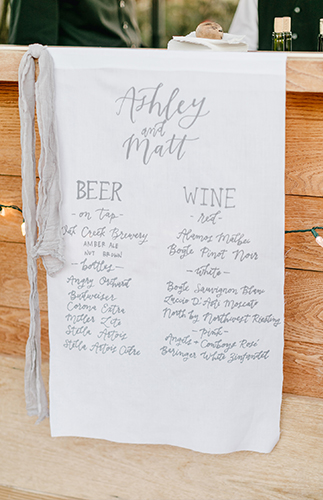 Ashley
and
Matt
BEER
-on tap-
Oak Creek Brewery
AMBER ALE
NUT BROWN
-bottles-
Angry Orchard
Budweiser
Corona Extra
Miller Lite
Stella Artois
Stella Artois Cidre
WINE
-red-
Alamos Malbec
Bogle Pinot Noir
-white-
Bogle Sauvignon Blanc
Luccio D'Asti Moscato
North by Northwest Riesling
-pink-
Angels & Cowboys Rosé
Beringer White Zinfandel